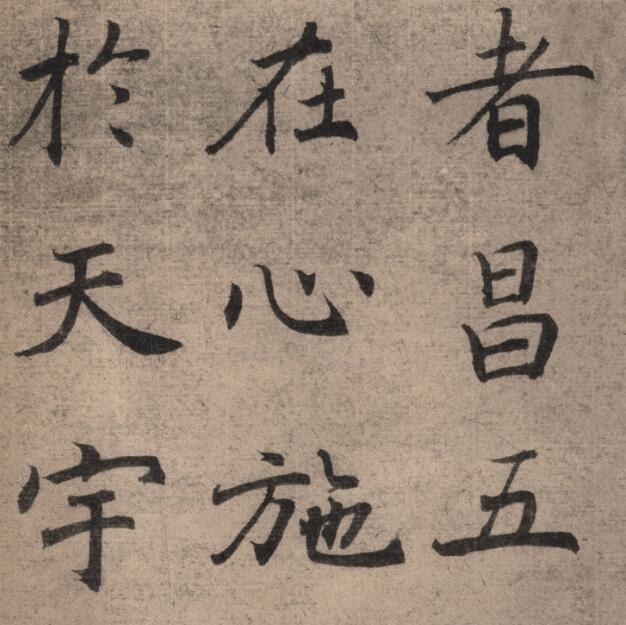 者昌五
在心施
於天宇